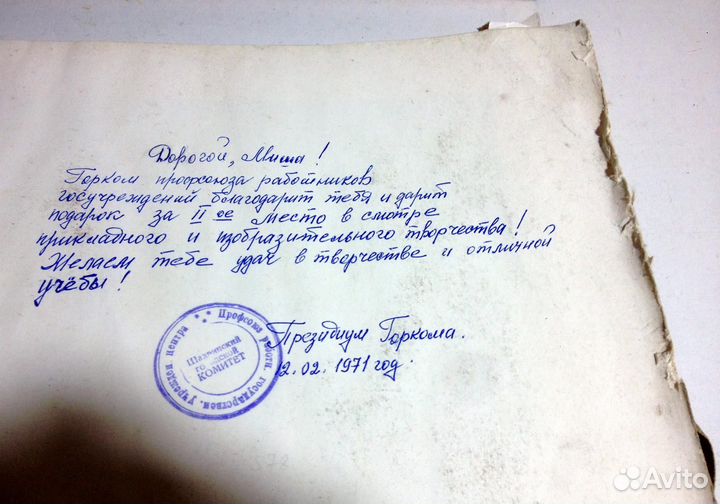 Дорогой, Миша!
Горком профсоюза работников
госучреждений благодарит тебя и дарит
подарок за II ое место в смотре
прикладного и изобразительного творчества!
Желаем тебе удач в творчестве и отличной
учёбы!
Президиум Горкома.
12.02.1971 год.
Профсоюз работн. государствен. учрежден. центра
Шахтинский
городской
КОМИТЕТ
Avito